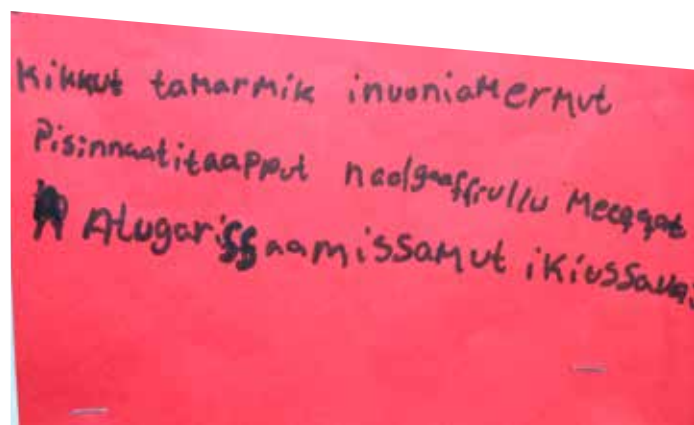 Kikkut tamarmik inuuniaMermut
Pisinnaatitaapput naalgaaffiullu Meeqqat
Atugarissaamissamut ikiussava